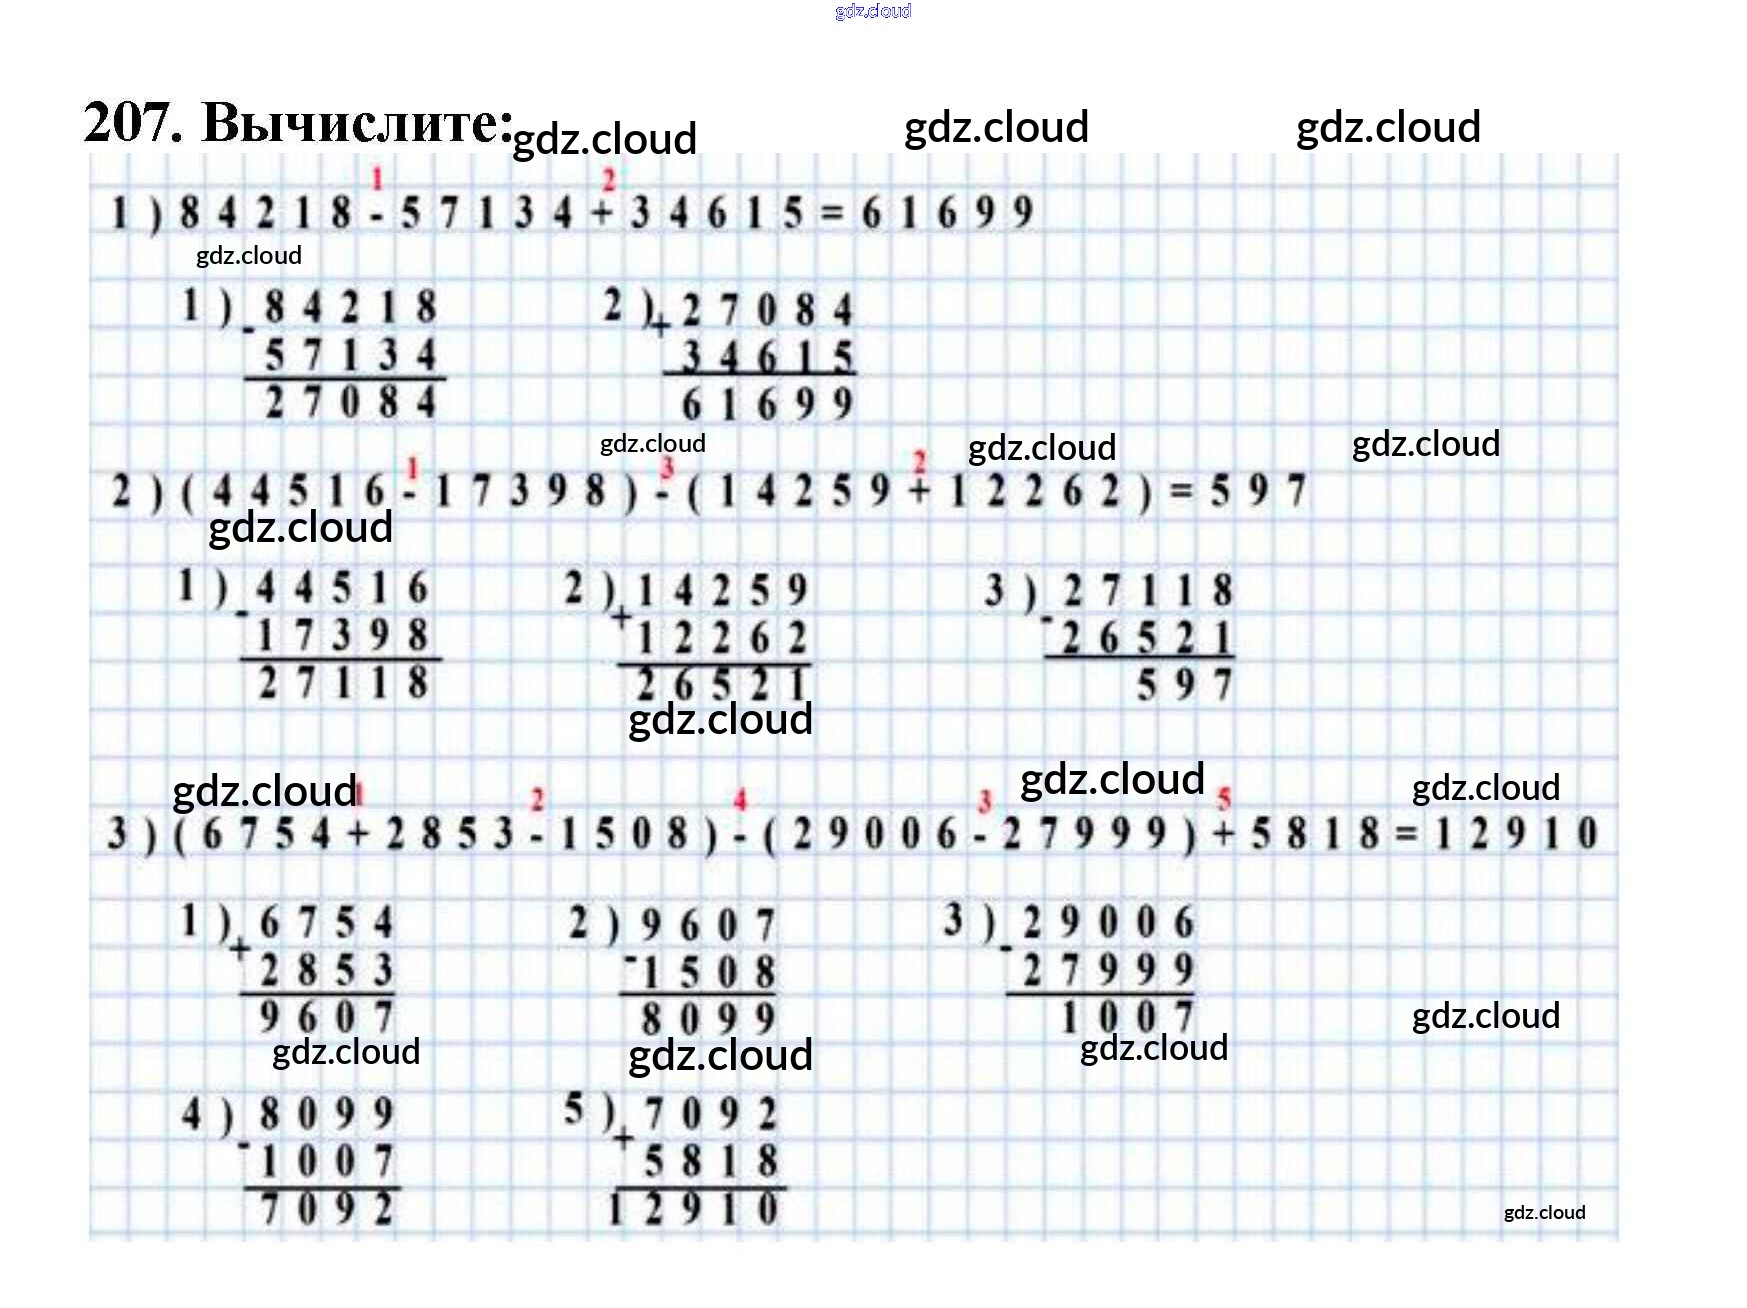 gdz.cloud
207. Вычислите: gdz.cloud gdz.cloud gdz.cloud
1 2
1) 84218 - 57134 + 34615 = 61699
gdz.cloud
1) 84218 2) 27084
- +
57134 34615
27084 61699
gdz.cloud gdz.cloud gdz.cloud
1 3 2
2) (44516 - 17398) - (14259 + 12262) = 597
gdz.cloud
1) 44516 2) 14259 3) 27118
- + -
17398 12262 26521
27118 26521 597
gdz.cloud
gdz.cloud gdz.cloud gdz.cloud
1 2 4 3 5
3) (6754 + 2853 - 1508) - (29006 - 27999) + 5818 = 12910
1) 6754 2) 9607 3) 29006
+ - -
2853 1508 27999
9607 8099 1007
gdz.cloud
gdz.cloud gdz.cloud gdz.cloud
4) 8099 5) 7092
- +
1007 5818
7092 12910
gdz.cloud